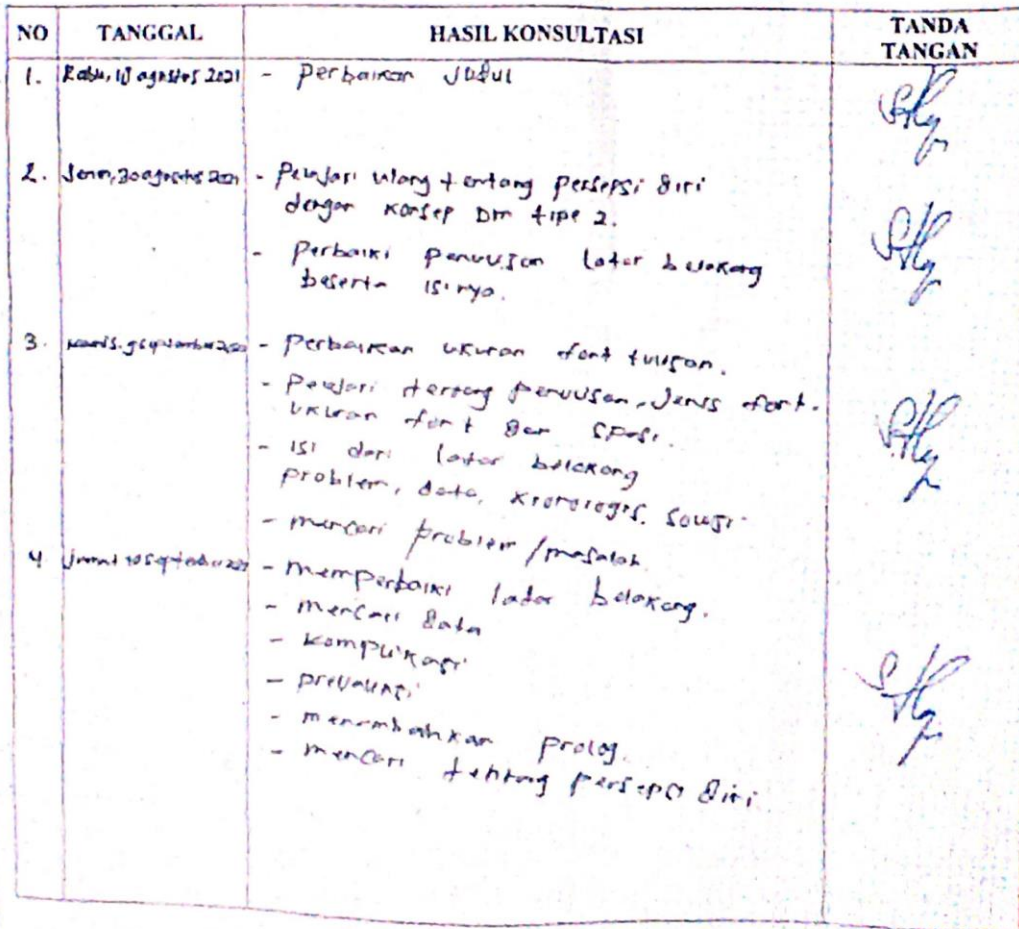 NO TANGGAL HASIL KONSULTASI TANDA TANGAN
1. Rabu, 18 agustus 2021 - perbaikan Judul
2. Senin, 30 agustus 2021 - Pelajari ulang tentang persepsi diri
dengan konsep Dm tipe 2.
- Perbaiki penulisan latar belakang
beserta isinya.
3. kamis, 9 september - Perbaikan ukuran font tulisan.
- Pelajari tentang penulisan, Jenis font.
ukuran font dan spasi.
- isi dari latar belakang
problem, data, kronologis, solusi
- mencari problem / masalah
4 jumat 10 september - memperbaiki latar belakang.
- mencari data
- komplikasi
- prevalensi
- menambahkan prolog.
- mencari tentang persepsi diri.